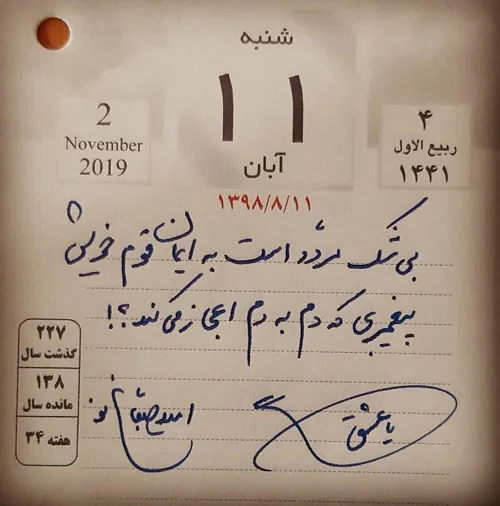 شنبه
۱۱
آبان
۱۳۹۸/۸/۱۱
2
November
2019
۴
ربیع الاول
۱۴۴۱
بی شک مردّد است به ایمان قوم خویش
پیغمبری که دم به دم اعجاز می کند؟!
یا عشق
امید صباغ نو
۲۲۷
گذشت سال
۱۳۸
مانده سال
هفته ۳۴